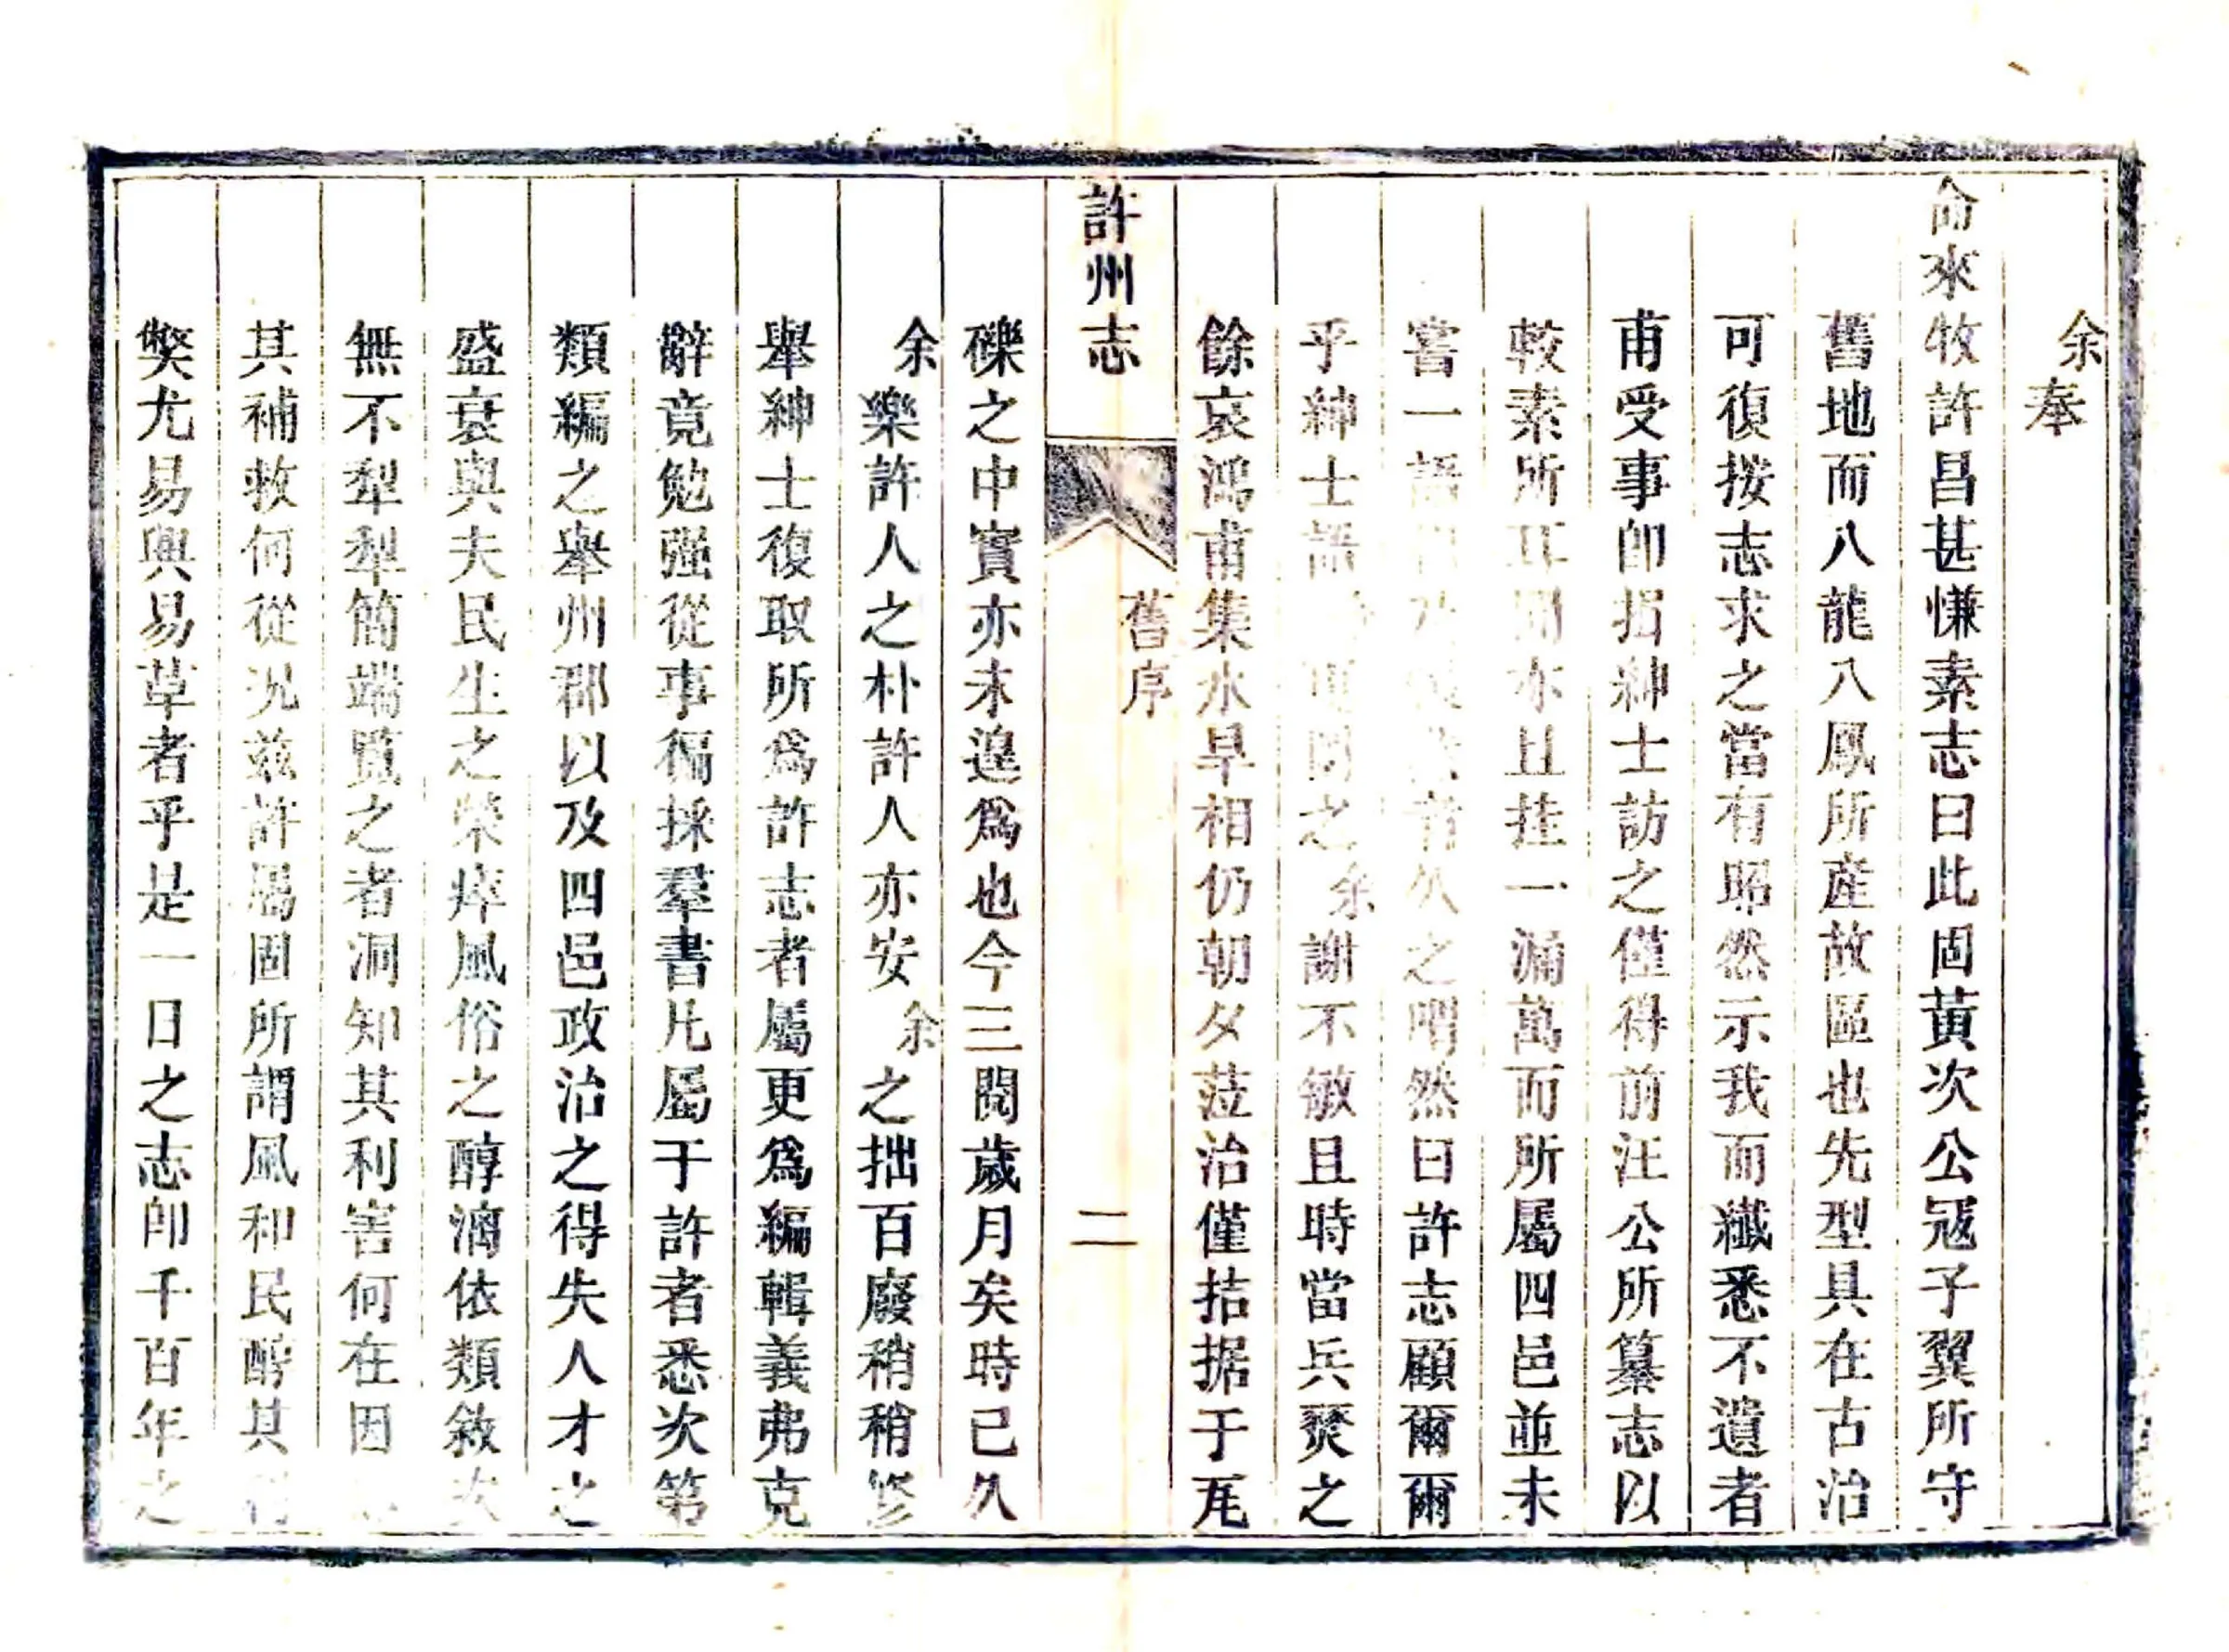 余奉
命來牧許昌甚慊素志曰此固黃次公冦子翼所守
舊地而八龍八鳳所產故區也先型具在古治
可復按志求之當有昭然示我而纖悉不遺者
甫受事卽揖紳士訪之僅得前汪公所纂志以
較素所耳聞亦且挂一漏萬而所屬四邑並未
嘗一語久之喟然曰許志顧爾爾
乎紳士語之余謝不敏且時當兵燹之
餘哀鴻甫集水旱相仍朝夕蒞治僅拮据于瓦
許州志
舊序
二
礫之中實亦未遑爲也今三閱歲月矣時已久
余樂許人之朴許人亦安余之拙百廢稍稍修
舉紳士復取所爲許志者屬更爲編輯義弗克
辭竟勉强從事徧採羣書凡屬于許者悉次第
類編之舉州郡以及四邑政治之得失人才之
盛衰與夫民生之榮瘁風俗之醇漓依類敘次
無不犁犁簡端覽之者洞知其利害何在因
其補救何從況茲許屬固所謂風和民醇其
獘尤易輿易草者乎是一日之志卽千百年之